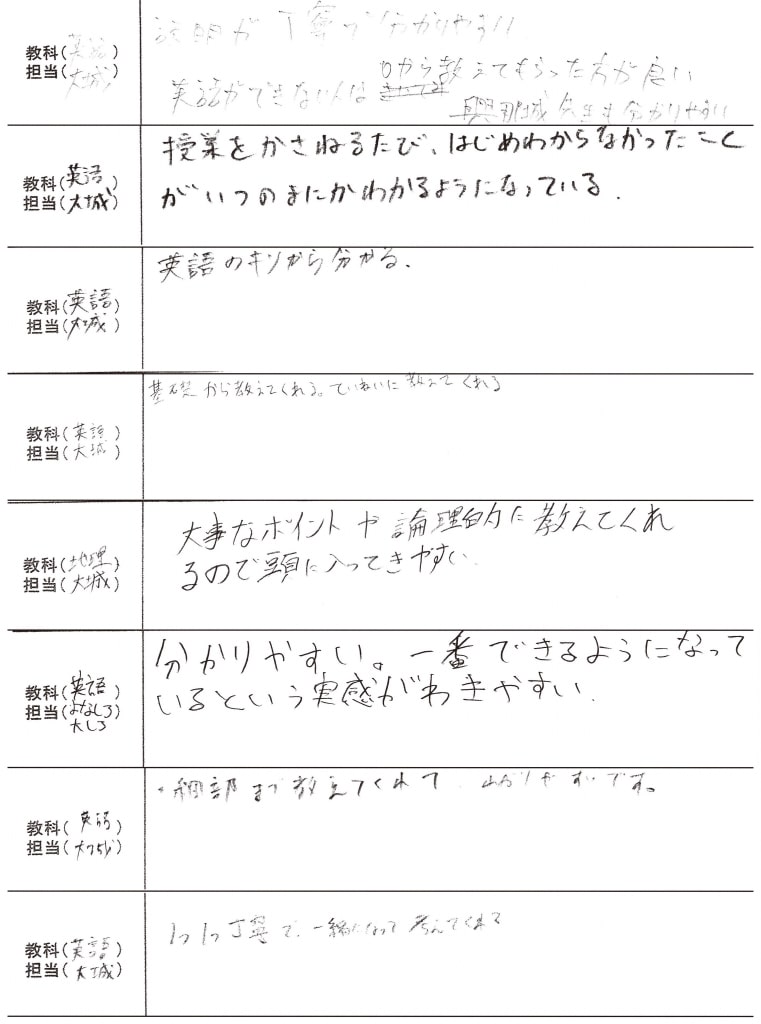 説明が丁寧で分かりやすい
教科(英語)
担当(大城)
英語ができない人は 0から教えてもらった方が良い
與那城先生も分かりやすい
授業をかさねるたび、はじめわからなかったことが
いつのまにかわかるようになっている.
教科(英語)
担当(大城)
英語のキソから分かる.
教科(英語)
担当(大城)
基礎から教えてくれる。ていねいに教えてくれる
教科(英語)
担当(大城)
大事なポイントや論理的に教えてくれ
るので頭に入ってきやすい.
教科(地理)
担当(大城)
分かりやすい。一番できるようになって
いるという実感がわきやすい.
教科(英語
担当(よなしろ)
大しろ
・細部まで教えてくれて、分かりやすいです。
教科(英語)
担当(大城)
1つ1つ丁寧で、一緒になって考えてくれる
教科(英語)
担当(大城)